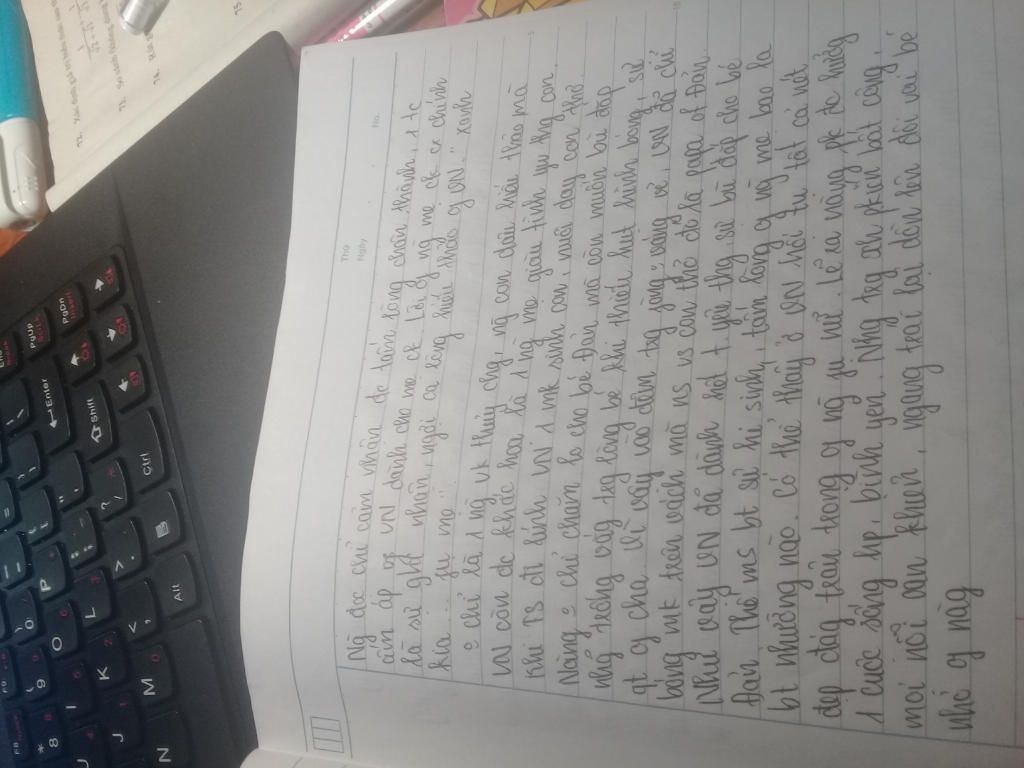 Thứ
Ngày
No.
Ng đọc chỉ cảm nhận đc tấm lòng chân thành, 1 tc
ấm áp of VN dành cho mẹ ck. Lời of ng mẹ ck cx chính
là sự ghi nhận, ngợi ca lòng hiếu thảo of VN." xanh
kia ... mẹ".
VN còn đc khắc họa là 1 ng mẹ giàu tình yu thg con.
Khi TS đi lính VN 1 mk sinh con, nuôi dạy con thơ.
Nàng ... chỉ chăm lo cho bé Đản mà còn muốn bù đắp
những trống vắng trg lòng bé khi thiếu hụt hình bóng, sự
of cha. Vì vậy vào đêm trg lòng vàng vẻ, VN đã chỉ
bóng mk trên vách mà ns vs con thơ đó là papa of Đản.
Như vậy VN đã dành hết t yêu thg, sự bù đắp cho bé
Đản. Thế ms bt sự hi sinh, tấm lòng of ng mẹ bao la
bt nhường nào. Có thể thấy ở VN hội tụ tất cả nét
đẹp đáng trân trọng of ng ju nữ. Lẽ ra nàng pk đc hưởng
1 cuộc sống hp, bình yên. Nhg trg cảnh pkiến bất công,
mọi nỗi oan khuất, ngang trái lại dồn lên đôi vai bé
nhỏ of nàg
72.
73. So sánh
74.
75.
Enter
Shift
Ctrl
Alt
PgUp
PgDn
End
P
O
L
K
J
M
N
8
9
0
F8